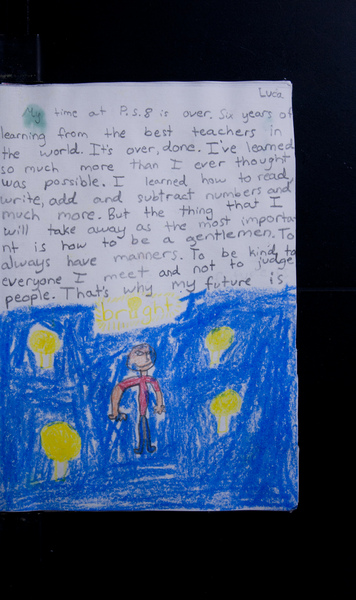 Luca
My time at P.S.8 is over. Six years of
learning from the best teachers in
the world. It's over, done. I've learned
so much more than I ever thought
was possible. I learned how to read,
write, add and subtract numbers and
much more. But the thing that I
will take away as the most importa
nt is how to be a gentlemen. To
always have manners. To be kind to
everyone I meet and not to judge
people. That's why my future is
bright